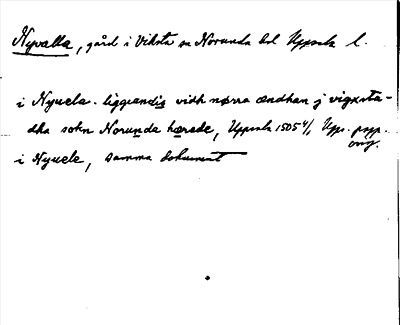 Nyvalla, gård i Viksta sn Norunda hd Uppsala l.
i Nyuela. liggiændis vidh nørra ændhan j vigxsta-
dha sokn Norunda hærede, Uppsala 1505 4/, Upps. papp.
orig.
i Nyuele, samma dokument